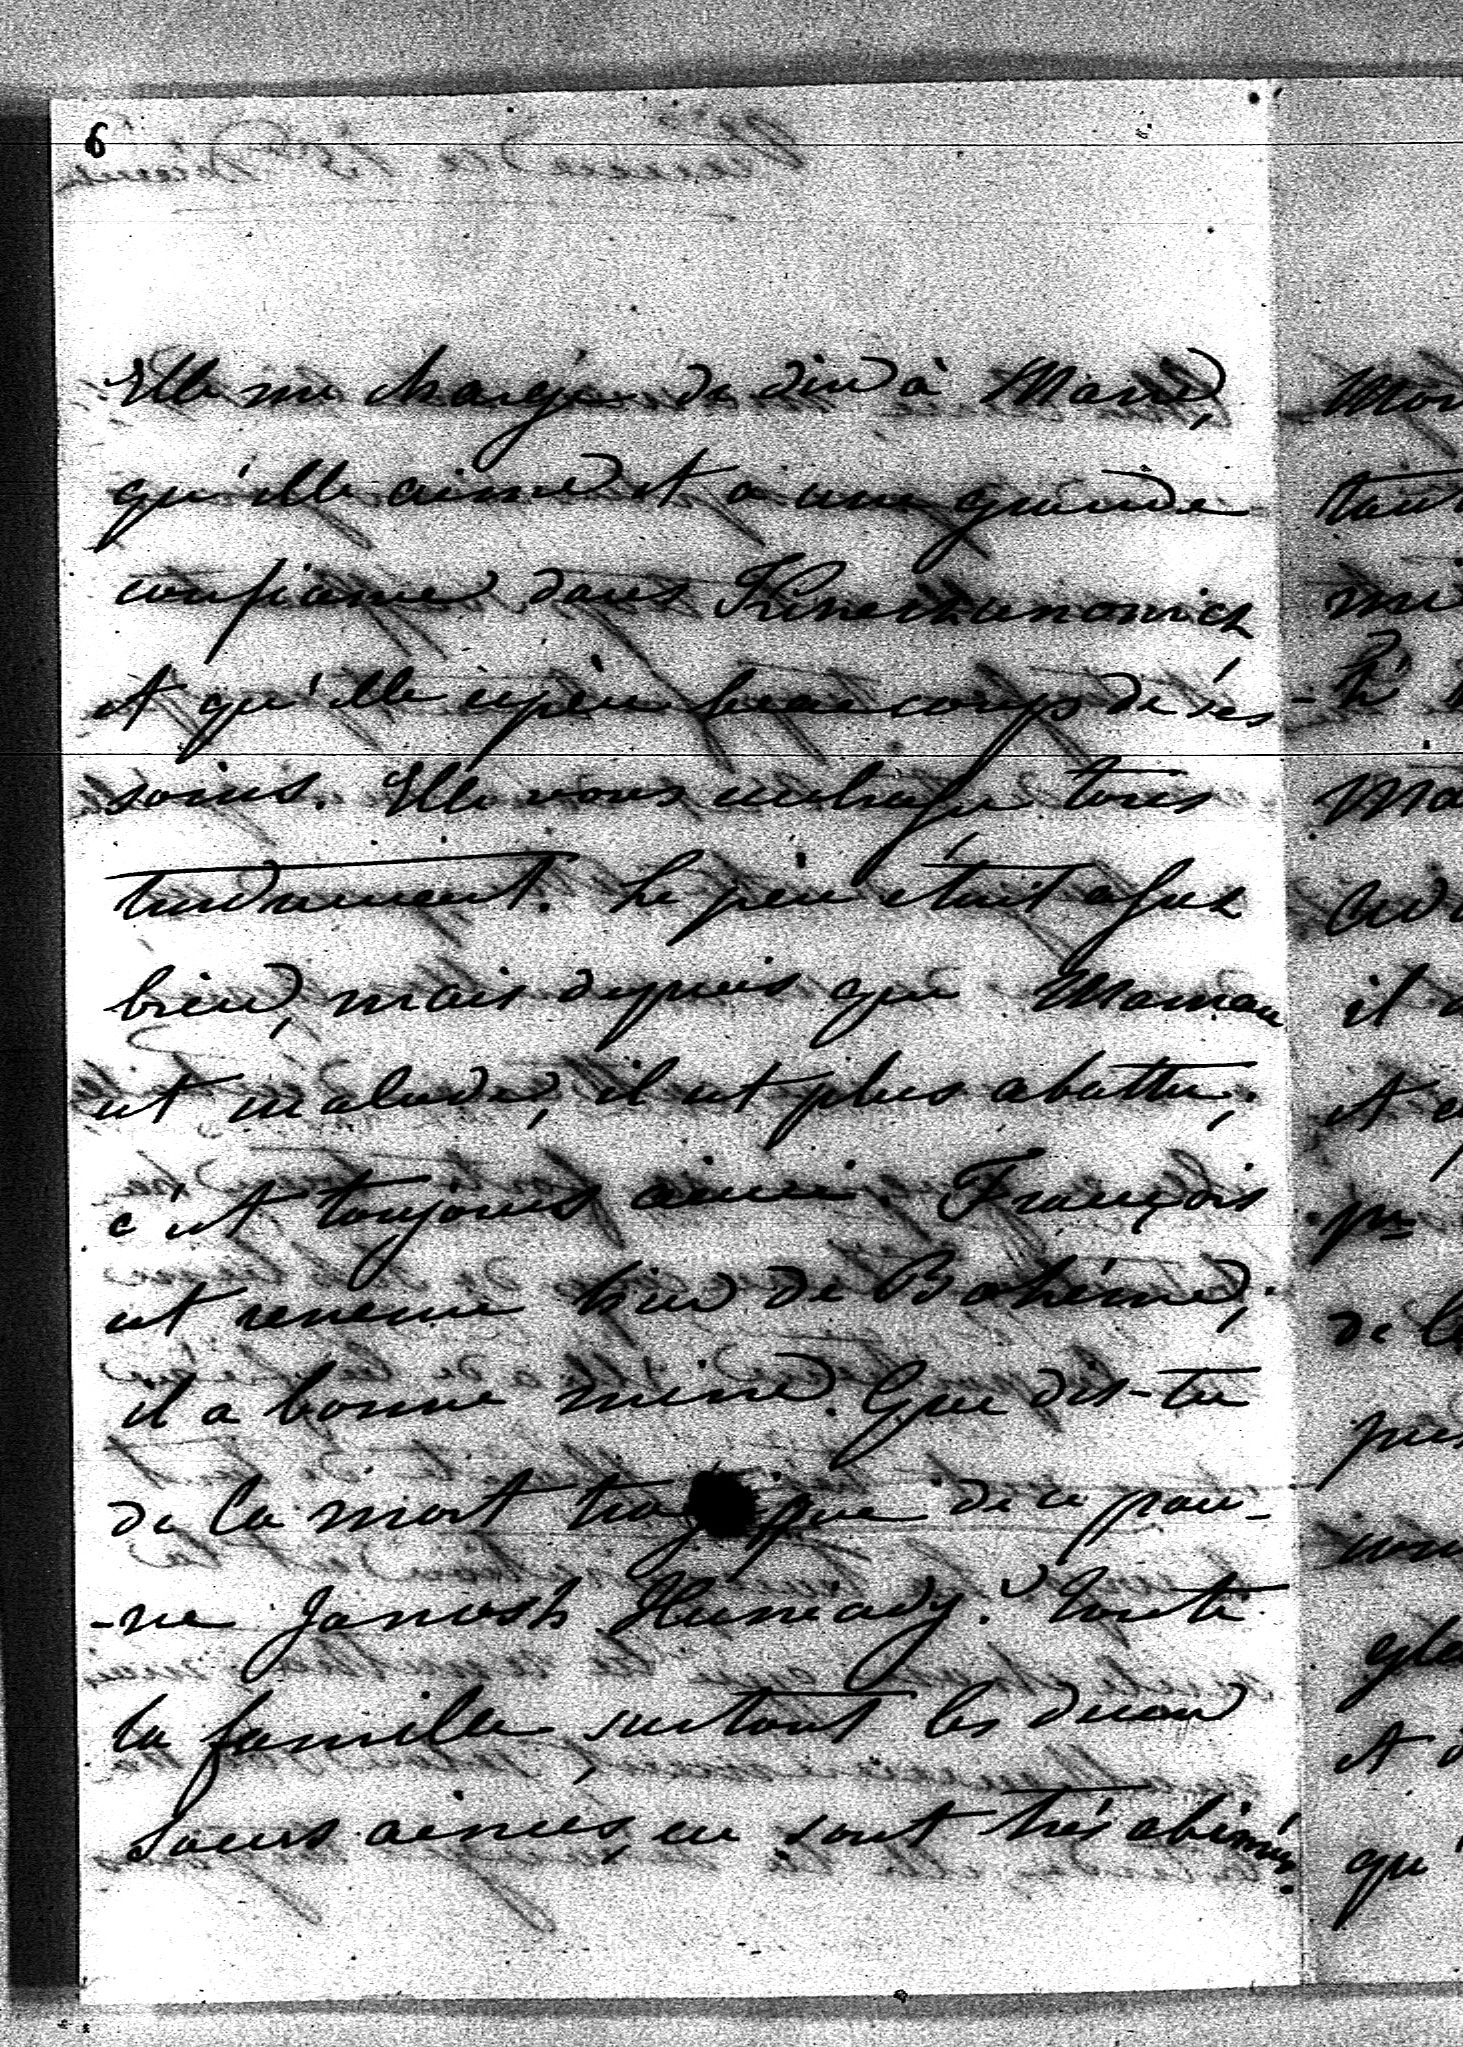 6
Elle me charge de dire à Marie,
qu'elle aime et a une grande
confiance dans
et qu'elle espère beaucoup de ses
soins. Elle vous embrasse tous
tendrement. Le père était assez
bien, mais depuis que Maman
est malade, il est plus abattu;
c'est toujours ainsi. François
est revenu hier de Bohême,
il a bonne mine. Que dis-tu
de la mort tragique de ce pau-
-vre Janosh Hunyady? Toute
la famille, surtout les deux
soeurs ainées, en sont très abimées.